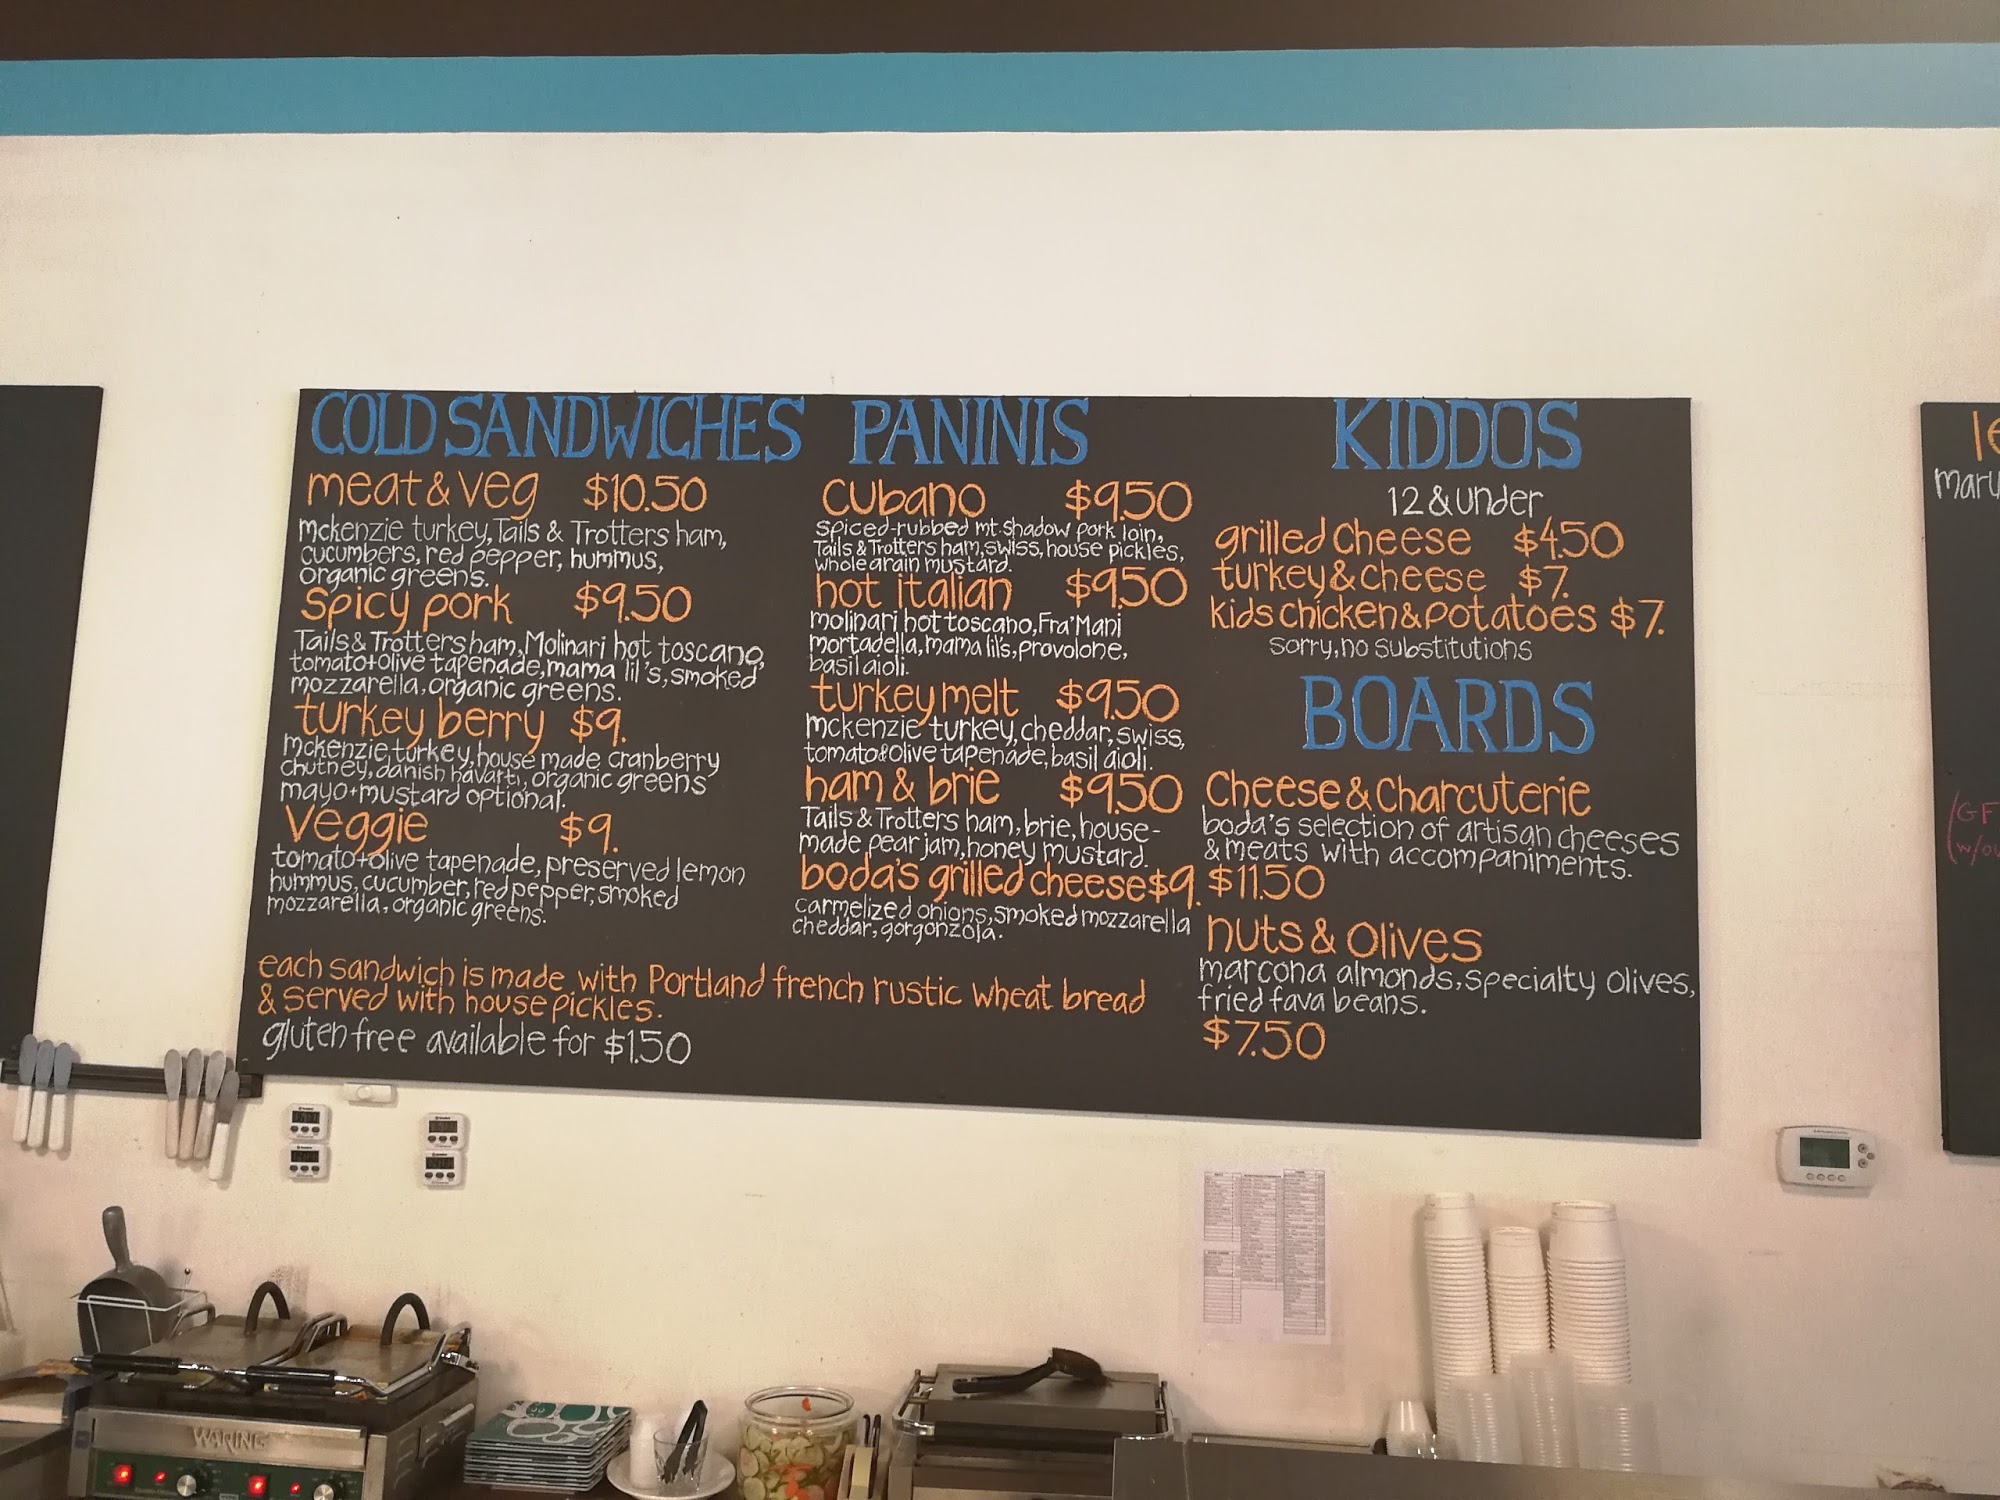 COLD SANDWICHES
meat & veg $10.50
mckenzie turkey, Tails & Trotters ham,
cucumbers, red pepper, hummus,
organic greens.
spicy pork $9.50
Tails & Trotters ham, Molinari hot toscano,
tomato+olive tapenade, mama lil's, smoked
mozzarella, organic greens.
turkey berry $9.
mckenzie turkey, house made cranberry
chutney, danish havarti, organic greens
mayo+mustard optional.
veggie $9.
tomato+olive tapenade, preserved lemon
hummus, cucumber, red pepper, smoked
mozzarella, organic greens.
PANINIS
cubano $9.50
spiced-rubbed mt. shadow pork loin,
Tails & Trotters ham, swiss, house pickles,
whole grain mustard.
hot italian $9.50
molinari hot toscano, Fra'Mani
mortadella, mama lil's, provolone,
basil aioli.
turkey melt $9.50
mckenzie turkey, cheddar, swiss,
tomato&olive tapenade, basil aioli.
ham & brie $9.50
Tails & Trotters ham, brie, house-
made pear jam, honey mustard.
boda's grilled cheese $9.
carmelized onions, smoked mozzarella
cheddar, gorgonzola.
each sandwich is made with Portland french rustic wheat bread
& served with house pickles.
gluten free available for $1.50
KIDDOS
12 & under
grilled cheese $4.50
turkey & cheese $7.
kids chicken & potatoes $7.
sorry, no substitutions
BOARDS
cheese & charcuterie
boda's selection of artisan cheeses
& meats with accompaniments.
$11.50
nuts & olives
marcona almonds, specialty olives,
fried fava beans.
$7.50
WARING